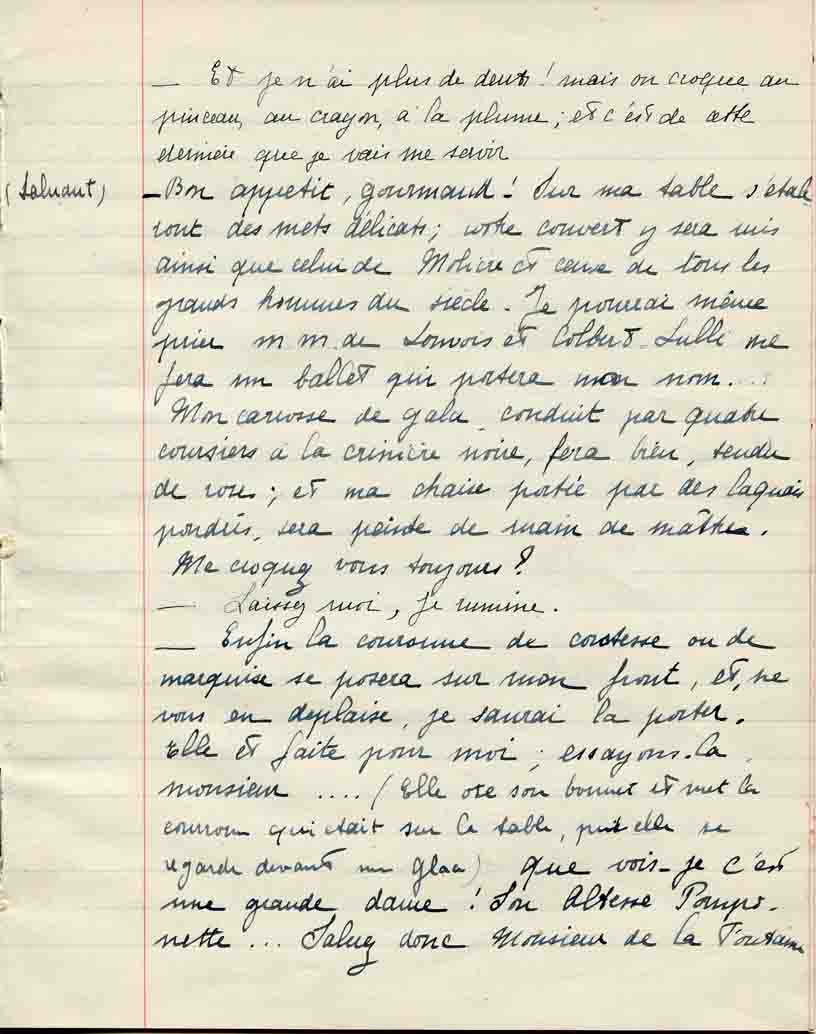 — Et je n'ai plus de dents ! mais on croque au
pinceau, au crayon, à la plume ; et c'est de cette
dernière que je vais me servir
(Saluant) — Bon appetit, gourmand ! Sur ma table s'étale
ront des mets délicats ; votre couvert y sera mis
ainsi que celui de Molière et ceux de tous les
grands hommes du siècle. Je pourrai même
prier m m. de Louvois et Colbert. Lulli me
fera un ballet qui portera mon nom....
Mon carrosse de gala conduit par quatre
coursiers à la crinière noire, fera bien, tendu
de rose ; et ma chaise portée par des laquais
poudrés, sera peinte de main de maître.
Me croquez vous toujours ?
— Laissez moi, je rumine.
— Enfin la couronne de comtesse ou de
marquise se posera sur mon front, et, ne
vous en deplaise, je saurai la porter.
Elle et faite pour moi ; essayons-la,
monsieur .... (Elle ote son bonnet et met la
couronne qui etait sur la table, puis elle se
regarde devant une glace) que vois-je c'est
une grande dame ! Son Altesse Pompo-
nette ... Saluez donc Monsieur de la Fontaine